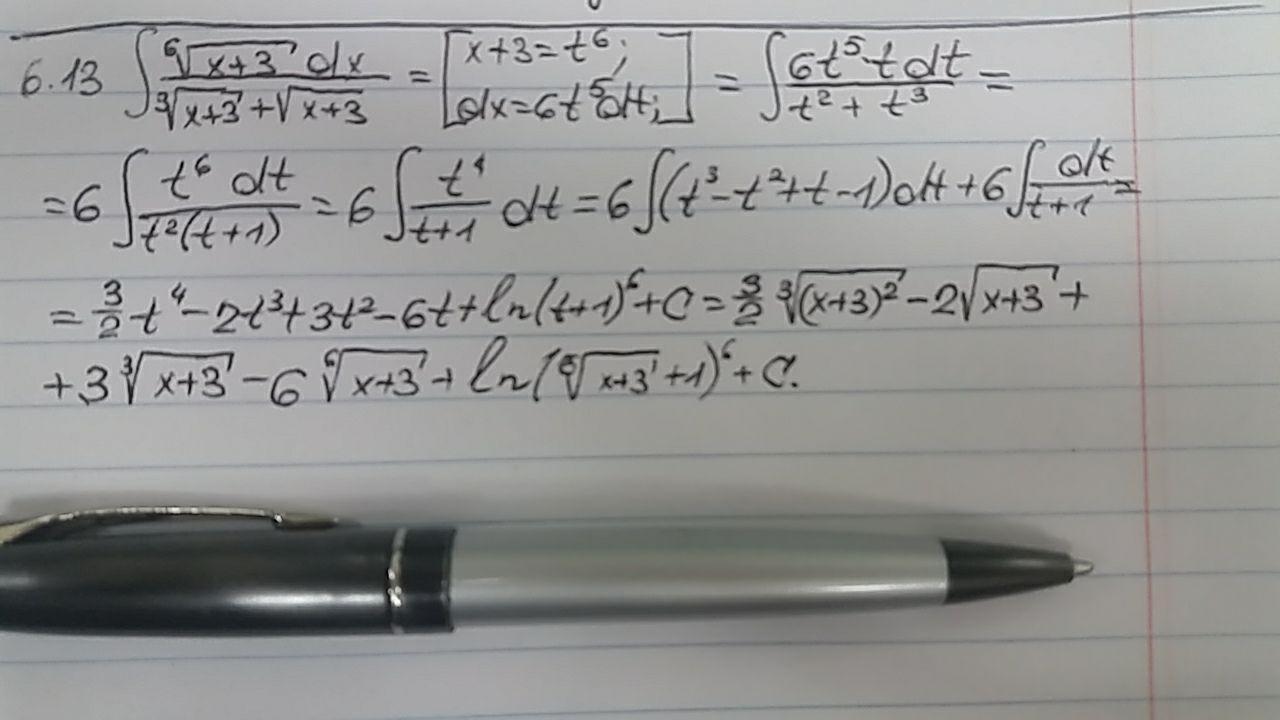 6.13 ∫ ⁶√(x+3) dx / (³√(x+3) + √(x+3)) = [x+3=t⁶; dx=6t⁵dt;] = ∫ 6t⁵·t dt / (t² + t³) =
= 6 ∫ t⁶ dt / (t²(t+1)) = 6 ∫ t⁴/(t+1) dt = 6 ∫(t³-t²+t-1)dt + 6 ∫ dt/(t+1) =
= 3/2 t⁴ - 2t³ + 3t² - 6t + ln(t+1)⁶ + C = 3/2 ³√((x+3)²) - 2√(x+3) +
+ 3 ³√(x+3) - 6 ⁶√(x+3) + ln(⁶√(x+3) + 1)⁶ + C.